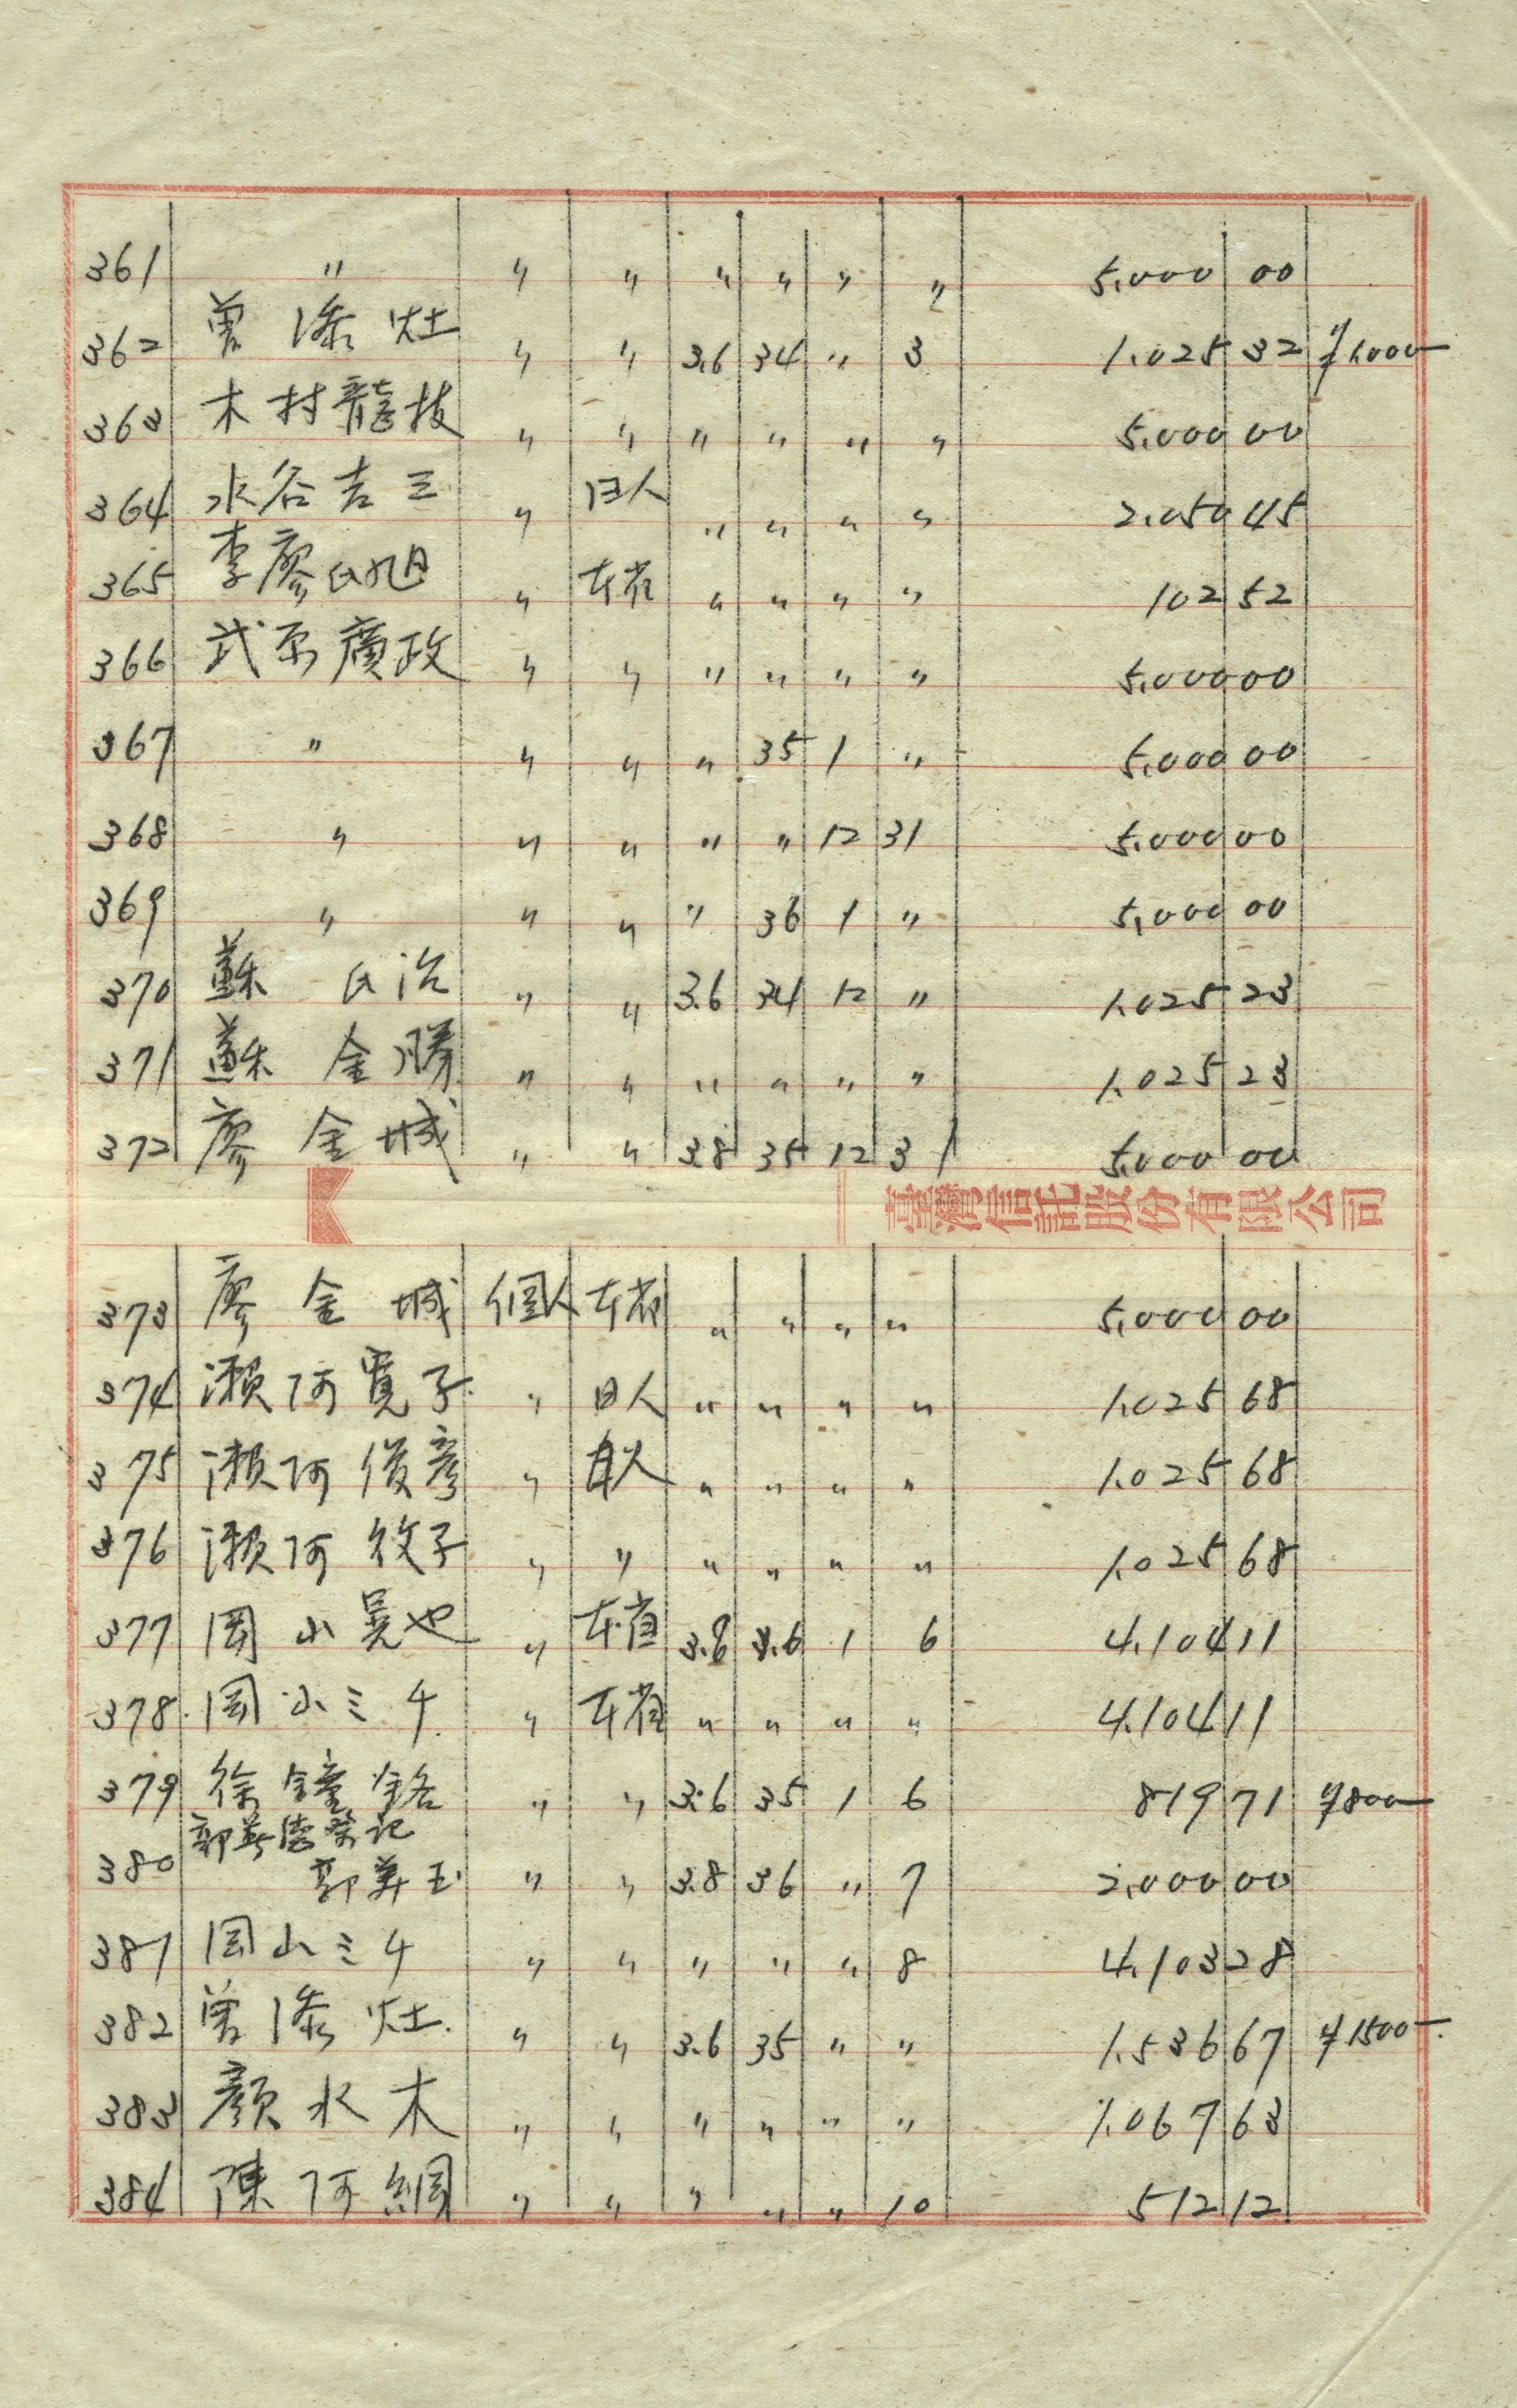 361 〃 〃 〃 〃 〃 〃 〃 5,000 00
362 曾添灶 〃 〃 3.6 34 〃 3 1.025 32 ¥1,000—
363 木村龍枝 〃 〃 〃 〃 〃 〃 5,000 00
364 水谷吉三 〃 日人 〃 〃 〃 〃 2.050 45
365 李廖氏旭 〃 本省 〃 〃 〃 〃 102 52
366 武原廣政 〃 〃 〃 〃 〃 〃 5,000 00
367 〃 〃 〃 〃 35 1 〃 5,000 00
368 〃 〃 〃 〃 〃 12 31 5,000 00
369 〃 〃 〃 〃 36 1 〃 5,000 00
370 蘇氏治 〃 〃 3.6 34 12 〃 1.025 23
371 蘇金勝 〃 〃 〃 〃 〃 〃 1.025 23
372 廖金城 〃 〃 3.8 35 12 31 5,000 00
臺灣信託股份有限公司
373 廖金城 個人 本省 〃 〃 〃 〃 5,000 00
374 瀬河寛子 〃 日人 〃 〃 〃 〃 1.025 68
375 瀬河俊彦 〃 〃 〃 〃 〃 1.025 68
376 瀬河 子 〃 〃 〃 〃 〃 〃 1.025 68
377 岡山晃也 〃 本省 3.8 3.6 1 6 4.104 11
378 岡山ミチ 〃 本省 〃 〃 〃 〃 4.104 11
379 徐鐘銘 〃 〃 3.6 35 1 6 819 71 ¥800—
郭 記
380 郭美玉 〃 〃 3.8 36 〃 7 2,000 00
381 岡山ミチ 〃 〃 〃 〃 〃 8 4.103 28
382 曾添灶 〃 〃 3.6 35 〃 〃 1.536 67 ¥1500—
383 顏水木 〃 〃 〃 〃 〃 〃 1.067 63
384 陳阿綢 〃 〃 〃 〃 〃 10 512 12